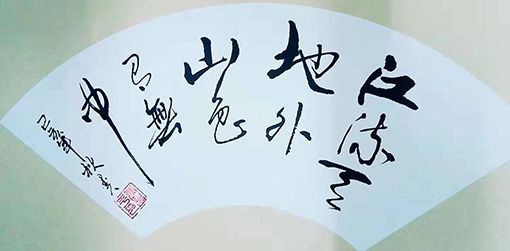 江流天
地外
山色
有無
中
己亥年秋